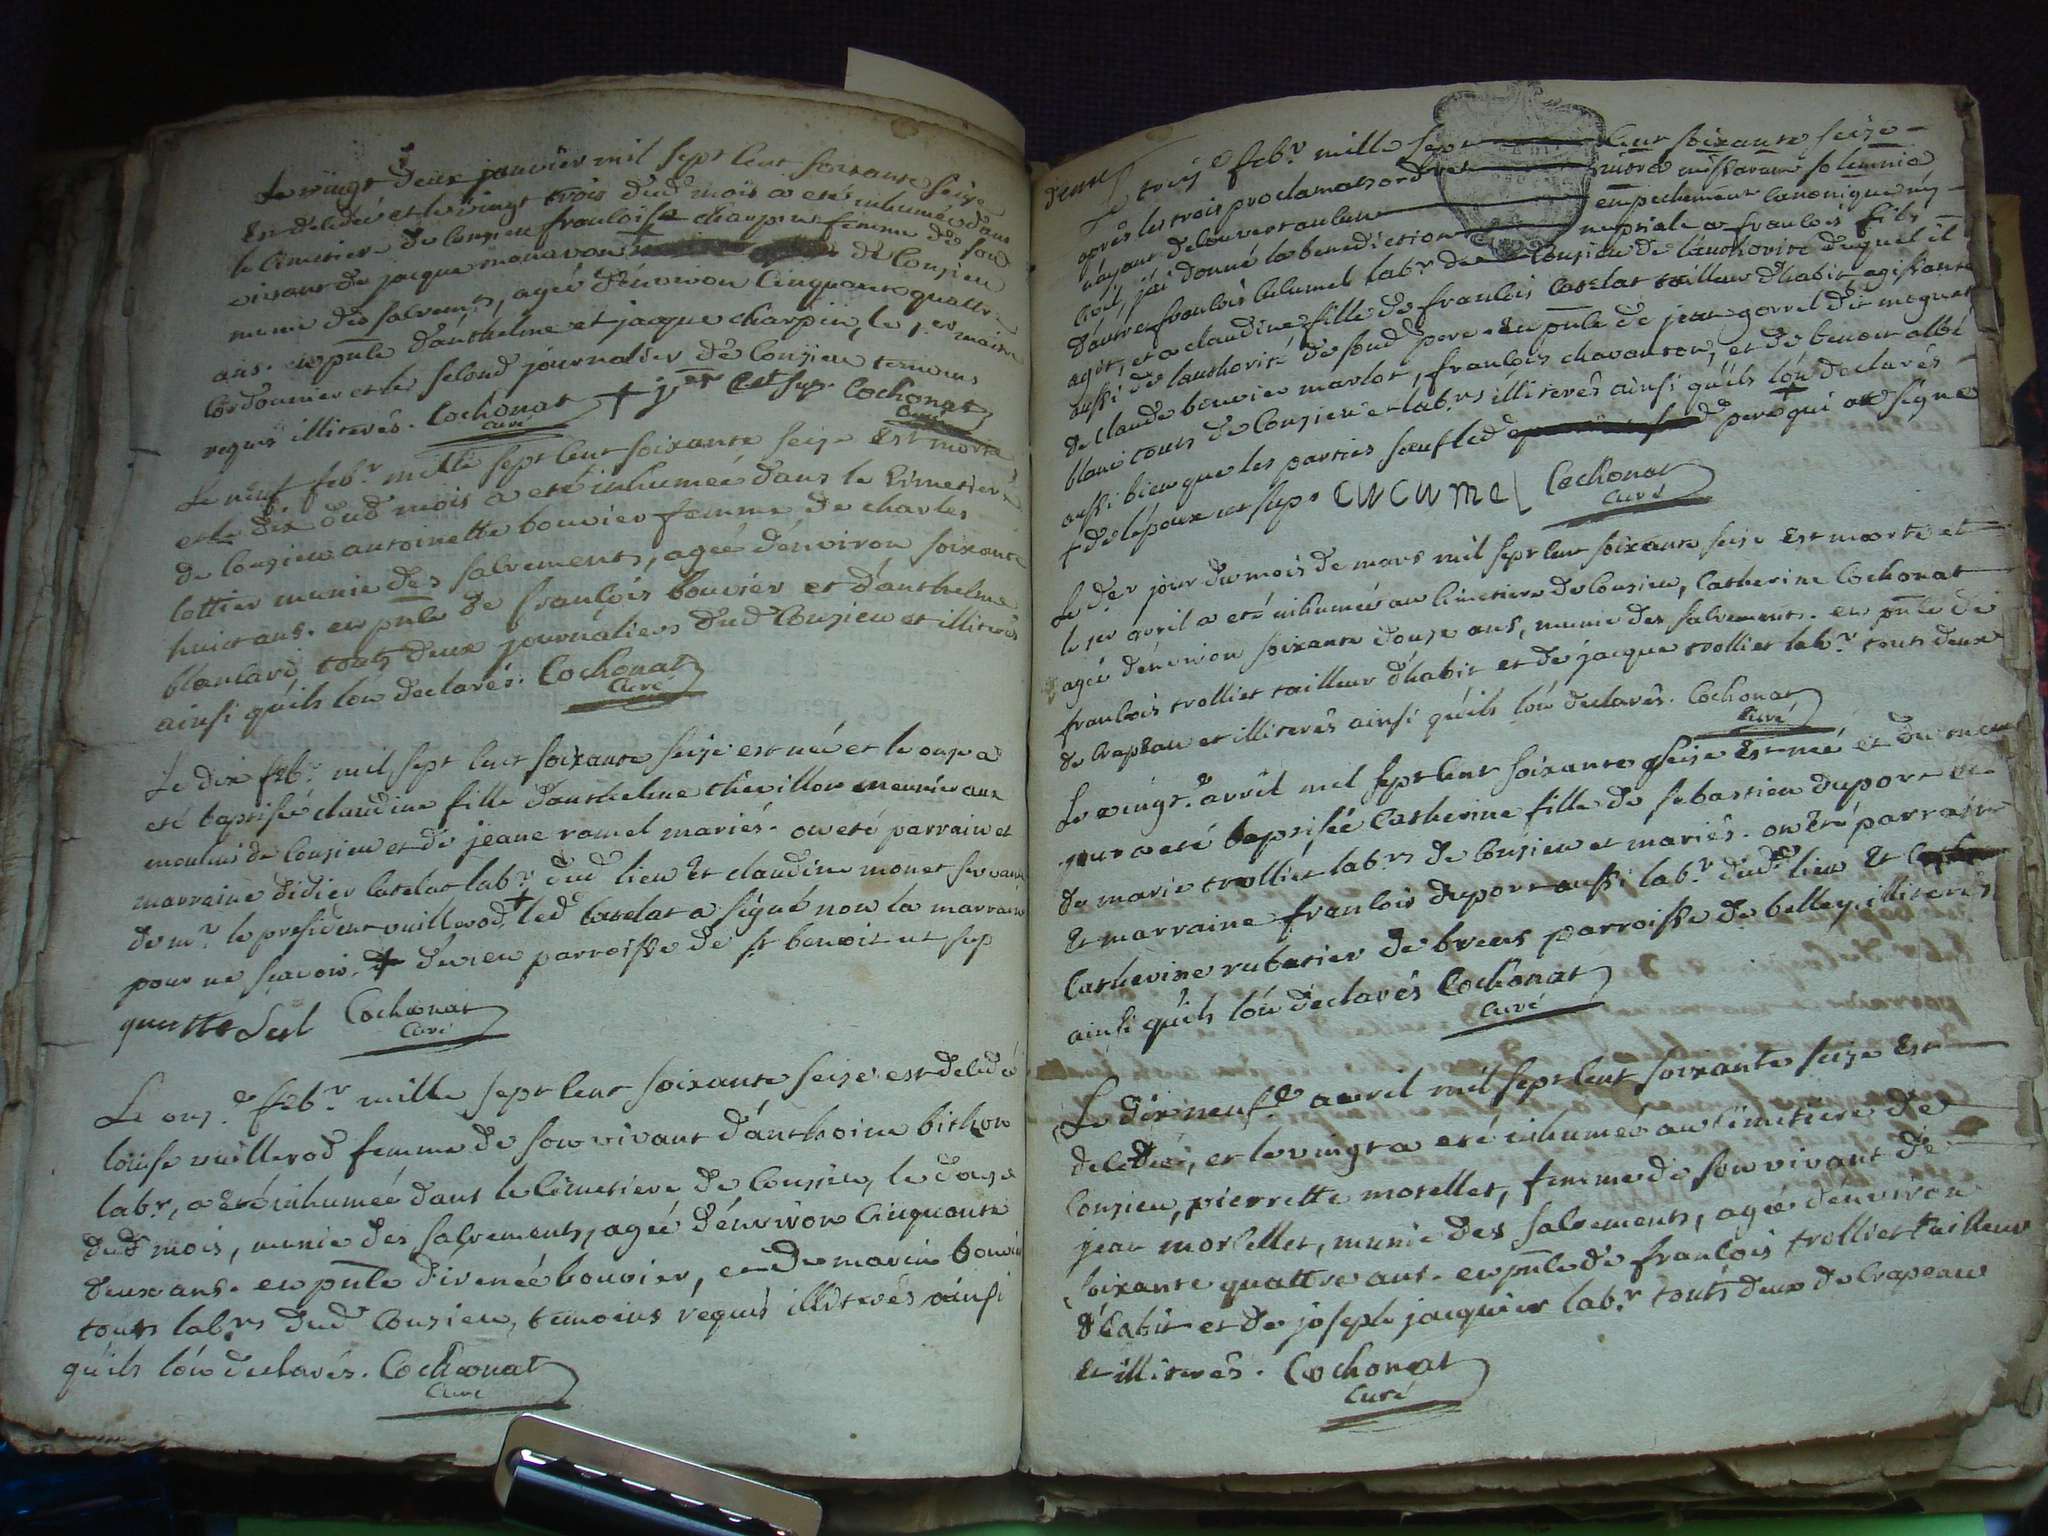 Le vingt deux janvier mil sept cent soixante seise
Est décédéé et le vingt trois dud mois a eté inhuméé dans
le cimetiere de Consieu françoise charpin femme de son
vivant de jacque monavon de Consieu
munie des sacrements, agéé d'énviron Cinquante quattre
ans. en pnce d'anthelme et jacque charpin, le 1er maitre
Cordonnier et le second journalier de Consieu temoins
requis illiterés. Cochonat + 1er ut sup. Cochonat
Curé Curé
Le neuf febr. mille sept cent soixante seise Est morte
et le dix dud mois a eté inhuméé dans le Cimetiere
de Consieu antoinette bouvier femme de charles
cottier munie des sacrements, agéé d'énviron soixante
huict ans. en pnce de françois bouvier et d'anthelme
blanland, touts deux journaliers dud Consieu et illiterés
ainsi qu'ils l'ón declarés. Cochonat
Curé
Le dix febr. mil sept cent soixante seise est néé et le onse a
eté baptiséé claudine fille d'anthelme chevillon meunier aux
moulins de Consieu et de jeane ramel mariés. on eté parrain et
marraine didier catelat labr. dud lieu Et claudine monet servante
de mr. le president vuillerod, + led catelat a signé non la marraine
pour ne scavoir. + deseu parroisse de st benoit ut sup
Cochonat
Curé
Le onse febr. mille sept cent soixante seise est decedéé
louise vuillerod femme de son vivant d'ánthoine bithon
labr, a eté inhuméé dans le Cimetiere de Consieu, le douse
dud mois, munie des sacrements, agéé d'énviron Cinquante
deux ans. en pnce d'irenéé bouvier, et de marin bouvier
touts labrs dud Consieu, temoins réquis illiterés ainsi
qu'ils l'ón declarés. Cochonat
Curé
Le treise febr. mille sept cent soixante seise
aprés les trois proclamats ordres intra missarum solemnia
n'ayant decouvert aulcun empechement Canonique ny
Civil, j'ai donné la benediction nuptiale a françois fils
d'autre françois Cucumel labr. de Consieu de l'authorité duquel il
agit, et a claudine fille de françois Catelat tailleur d'habit agissante
aussi de l'authorité de sond pere. En pnce de jean gorrel dit moquet
de Claude bouvier marlot, françois chavanton, et de benoit albé
blanc touts de Consieu et labrs illiterés ainsi qu'ils l'ón declarés
aussi bien que les parties sauf led pere qui a signé
+ de l'époux ut sup. CUCUMEL Cochonat
Curé
Le der jour du mois de mars mil sept cent soixante seise Est morte et
le 1er avril a eté inhuméé au Cimetiere de Consieu, Catherine Cochonat
agéé d'énviron soixante douse ans, munie des sacrements. en pnce de
françois trolliet tailleur d'habit et de jacque trolliet labr. touts deux
de Crapéau et illiterés ainsi qu'ils l'ón declarés. Cochonat
Curé
Le vingt. avril mil sept cent soixante seise Est néé et du meme
jour a eté baptiséé Catherine fille de sebastien duport et
de marie trolliet labrs de Consieu et mariés. on Eté parrain
Et marraine françois duport aussi labr. dud lieu Et
Catherine rubatier de brens parroisse de belley illiterés
ainsi qu'ils l'ón declarés Cochonat
Curé
Le dix neufe avril mil sept cent soixante seise Est
decedéé, et le vingt a eté inhuméé au Cimetiere de
Consieu, pierrette morellet, femme de son vivant de
jean morellet, munie des sacrements, agéé d'énviron
soixante quattre ans. en pnce de françois trolliet tailleur
d'habit et de joseph jacquier labr. touts deux de Crapeau
et illiterés. Cochonat
Curé